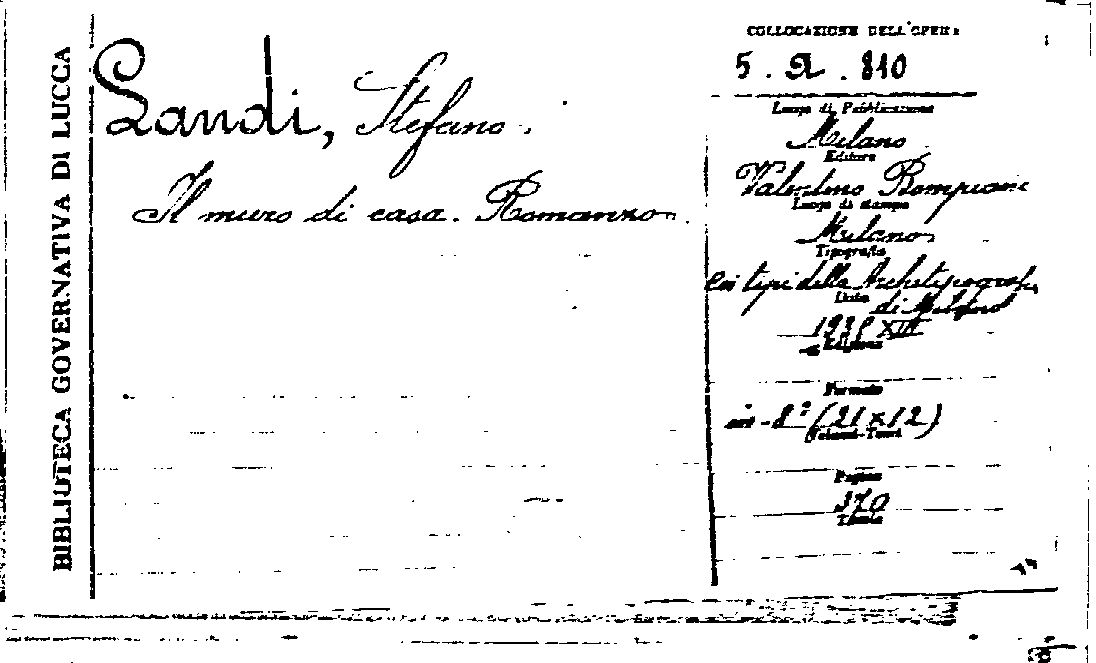 BIBLIOTECA GOVERNATIVA DI LUCCA
Landi, Stefano.
Il muro di casa. Romanzo.
COLLOCAZIONE DELL'OPERA
5. A. 810
Luogo di Pubblicazione
Milano
Editore
Valentino Bompiani
Luogo di stampa
Milano
Tipografia
Coi tipi della Archetipografia
Data
di Milano
XIII
Edizione
Formato
in-8° (21x12)
Volumi-Tomi
Pagine
370
Tavole